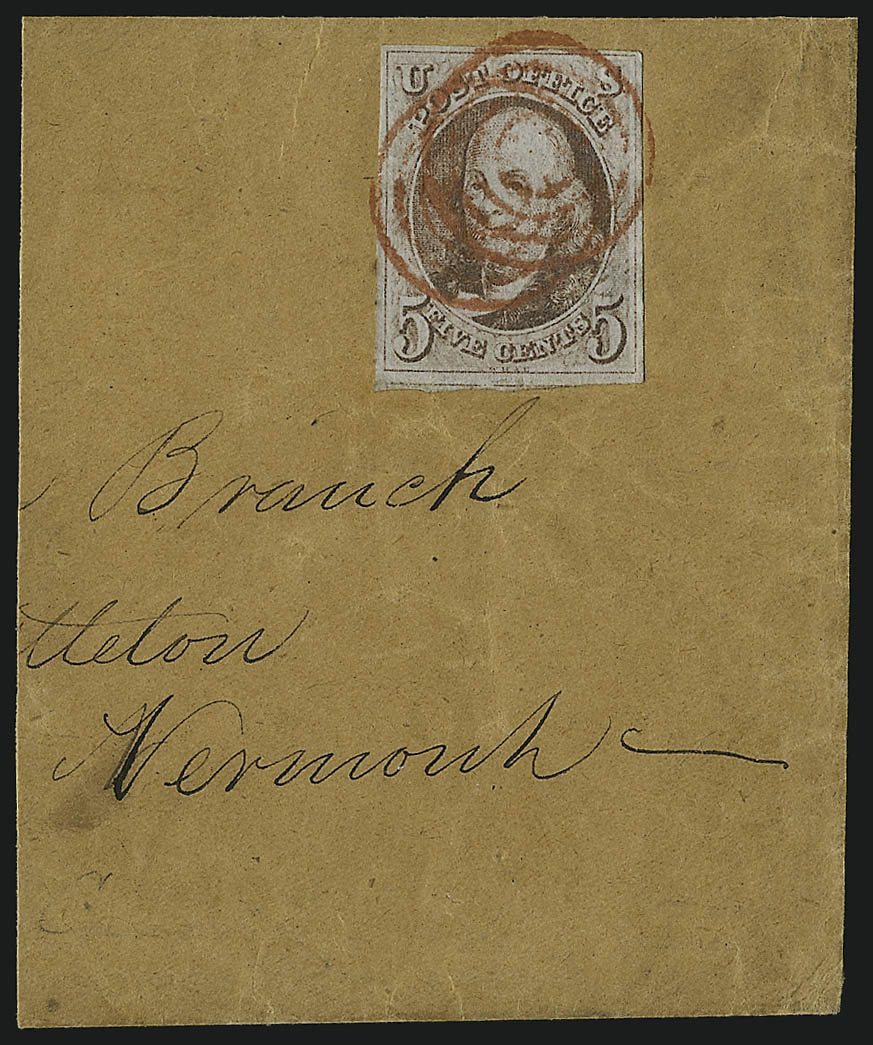 U S
POST OFFICE
5 FIVE CENTS 5
Branch
ttleton
Vermont